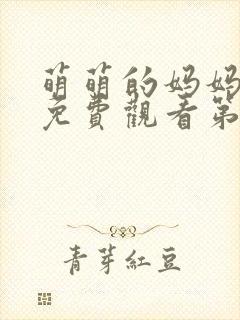 萌萌的妈妈
免費觀看第
青芽紅豆